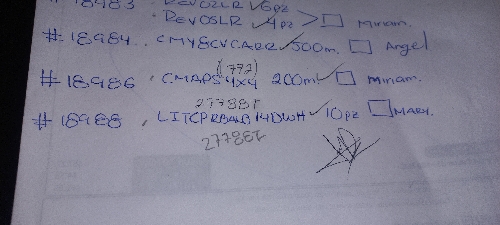 #18983 . REVOZLR ✓ 6pz
. REVOSLR ✓ 4pz > ☐ Miriam.
#18984 . CMY8CVCARR ✓ 500m. ☐ Angel
(772)
#18986 . CMAPS 4x4 200m ✓ ☐ Miriam.
277887
#18988 . ✓ 10pz ☐ MARY.
277887